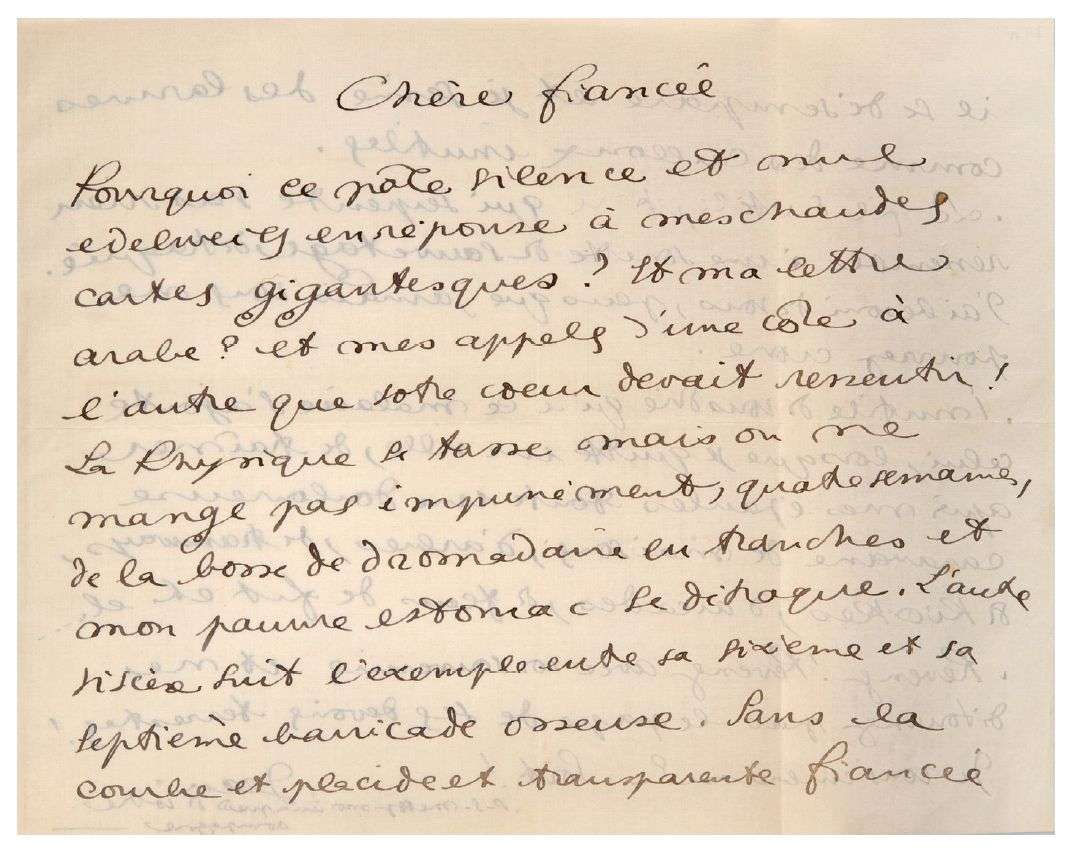 Chère fiancée
Pourquoi ce pâle silence et nul
edelweiss en réponse à mes chaudes
cartes gigantesques ? Et ma lettre
arabe ? et mes appels d'une côte à
l'autre que votre coeur devait ressentir !
La Physique se tasse mais on ne
mange pas impunément, quatre semaines,
de la bosse de dromadaire en tranches et
mon pauvre estomac se détraque. L'autre
viscère suit l'exemple entre sa sixième et sa
septième barricade osseuse. Sans la
courbe et placide et transparente fiancée